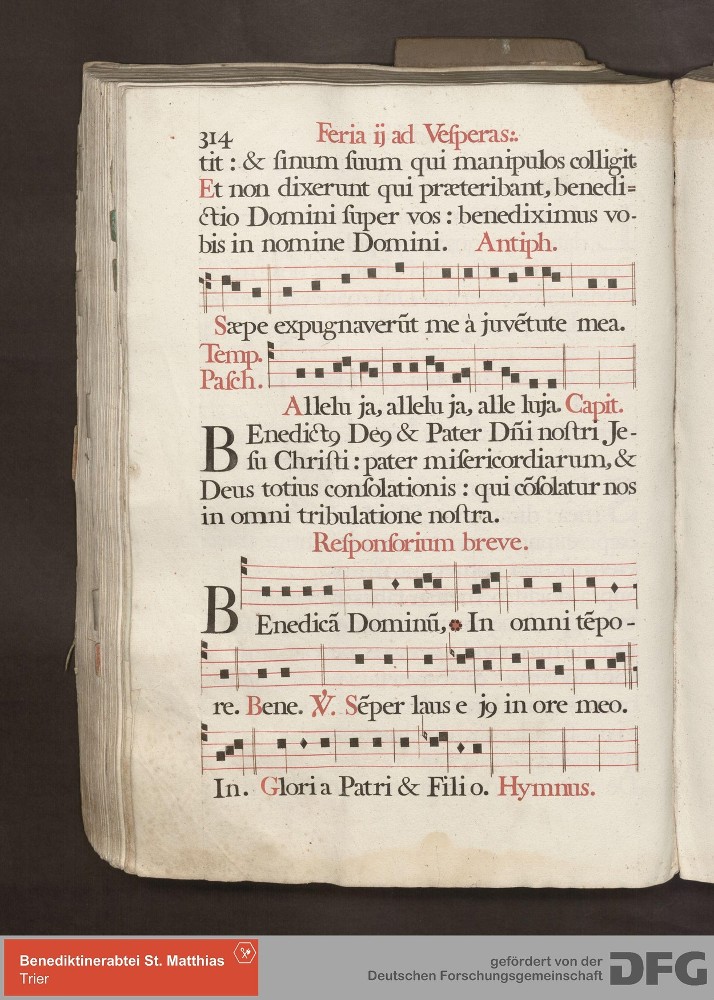 314 Feria ij ad Veſperas:.
tit : & ſinum ſuum qui manipulos colligit
Et non dixerunt qui præteribant, benedi=
ctio Domini ſuper vos : benediximus vo-
bis in nomine Domini. Antiph.
Sæpe expugnaverũt me à juvẽtute mea.
Temp.
Paſch.
Allelu ja, allelu ja, alle luja. Capit.
BEnedictꝯ Deꝯ & Pater Dñi noſtri Je-
ſu Chriſti : pater miſericordiarum, &
Deus totius conſolationis : qui cõſolatur nos
in omni tribulatione noſtra.
Reſponſorium breve.
BEnedicã Dominũ, In omni tẽpo-
re. Bene. ℣. Sẽper laus e jꝯ in ore meo.
In. Glori a Patri & Fili o. Hymnus.
Benediktinerabtei St. Matthias
Trier
gefördert von der
Deutschen Forschungsgemeinschaft
DFG